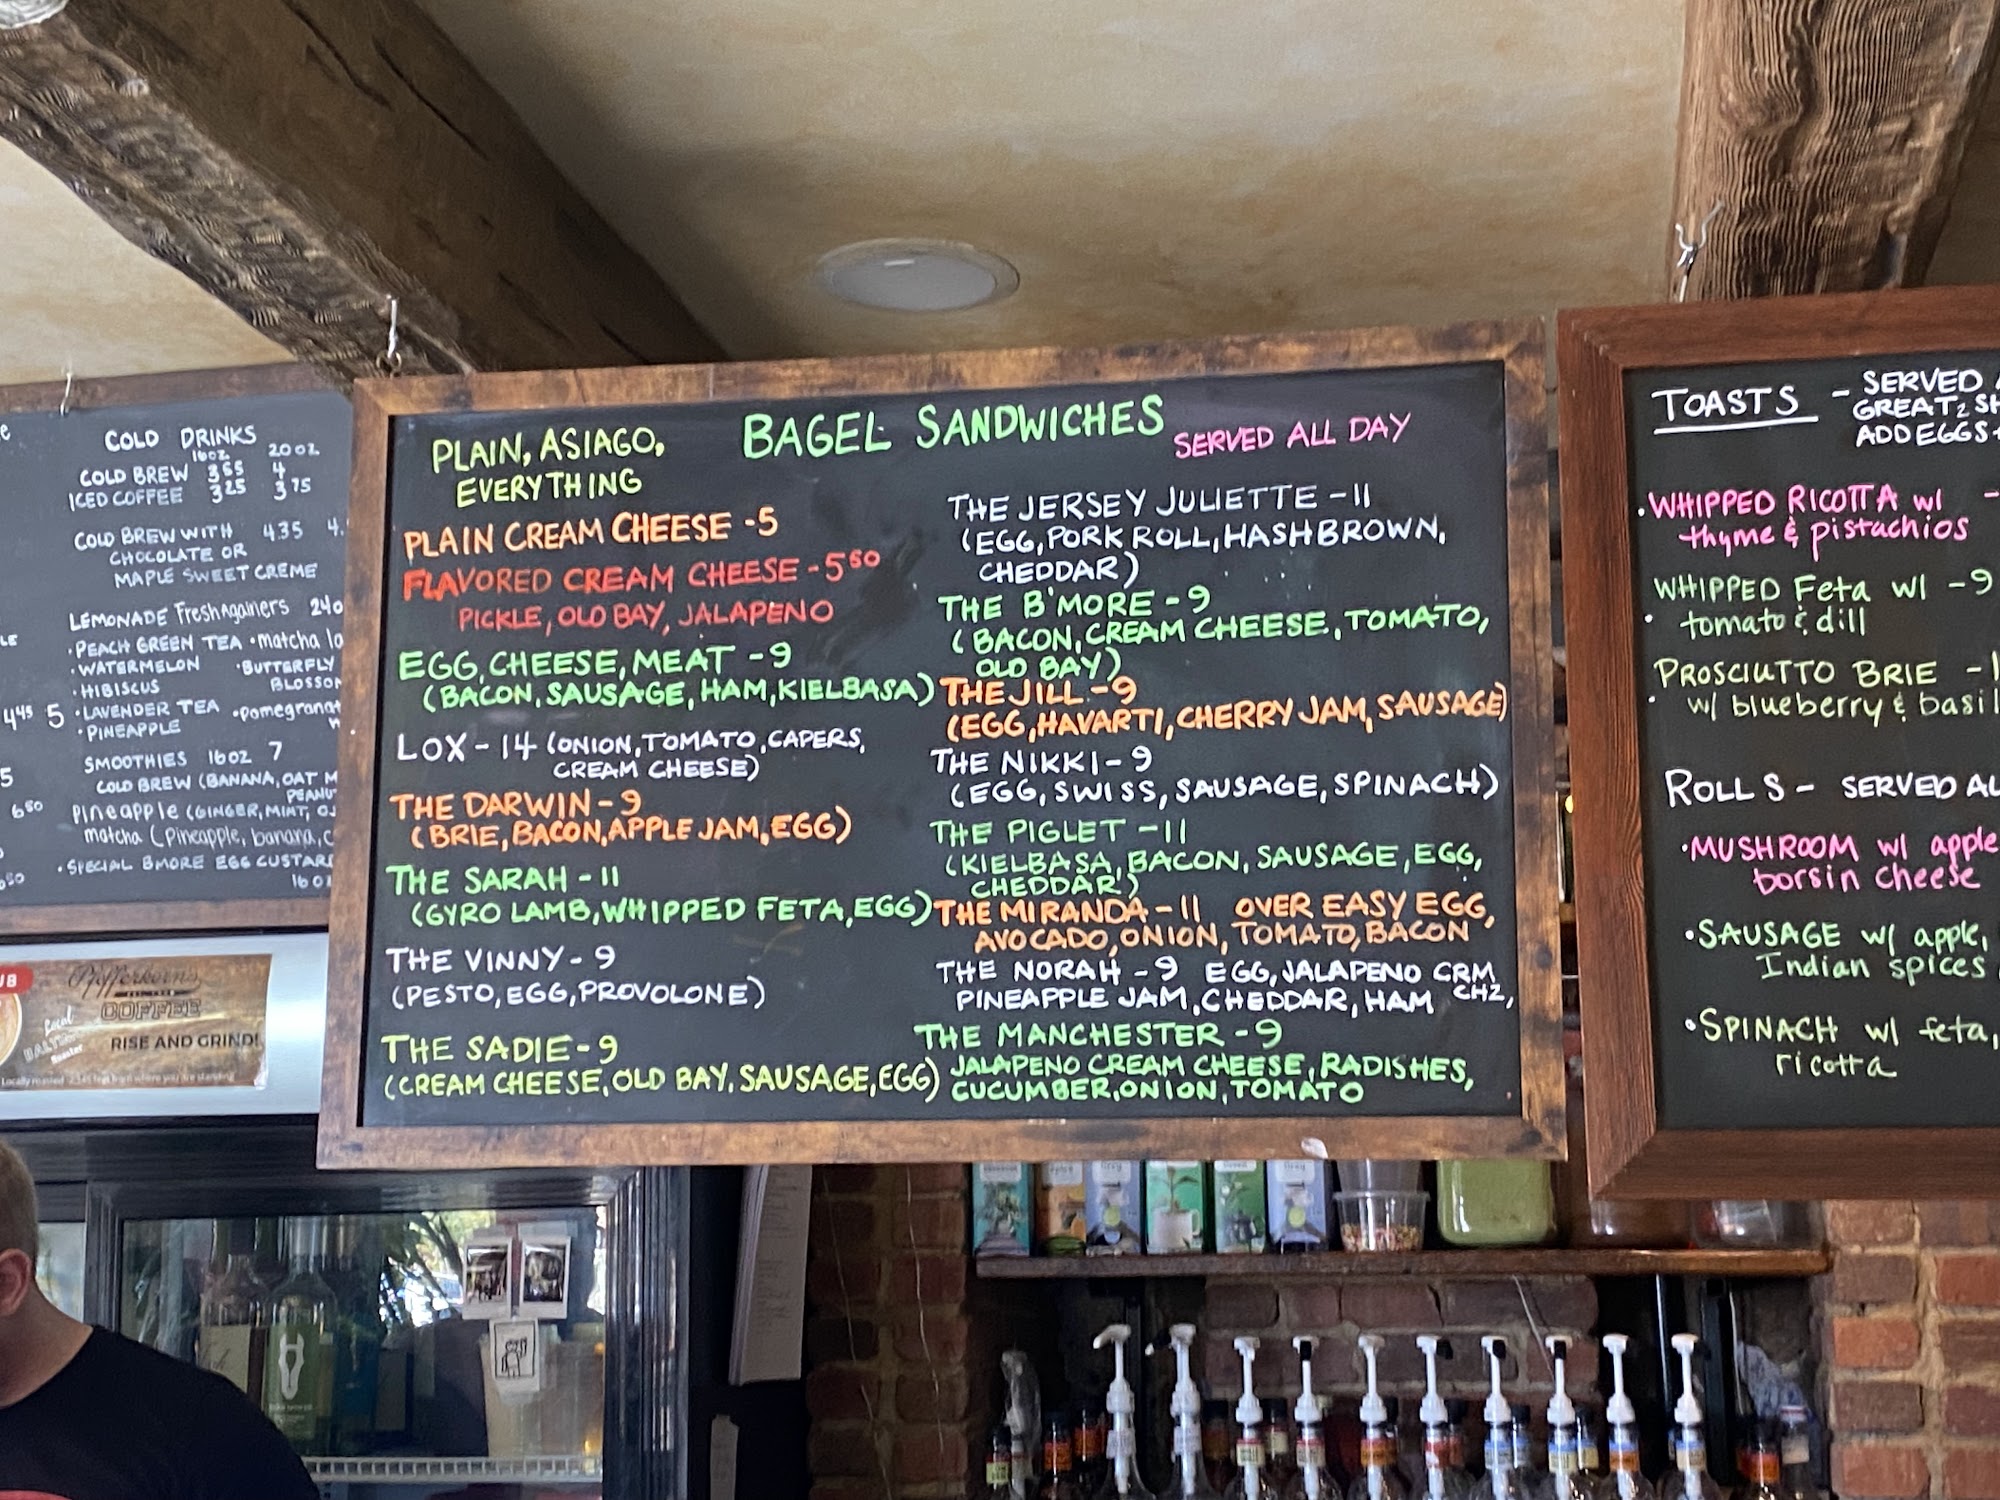 COLD DRINKS
16oz 20oz
COLD BREW 3.55 4
ICED COFFEE 3.25 3.75
COLD BREW WITH 4.35 4.
CHOCOLATE OR
MAPLE SWEET CREME
LEMONADE FreshAgainers 24o
• PEACH GREEN TEA • matcha
• WATERMELON • BUTTERFLY
• HIBISCUS BLOSSOM
4.45 5 • LAVENDER TEA
• PINEAPPLE
SMOOTHIES 16oz 7
COLD BREW (BANANA, OAT M
6.50 Pineapple (GINGER, MINT, OJ
matcha (Pineapple, banana, c
• SPECIAL BMORE EGG CUSTARD
16oz
Pfefferkorn's
COFFEE
Local
RISE AND GRIND!
BAGEL SANDWICHES SERVED ALL DAY
PLAIN, ASIAGO,
EVERYTHING
PLAIN CREAM CHEESE - 5
FLAVORED CREAM CHEESE - 5 50
PICKLE, OLD BAY, JALAPENO
EGG, CHEESE, MEAT - 9
(BACON, SAUSAGE, HAM, KIELBASA)
LOX - 14 (ONION, TOMATO, CAPERS,
CREAM CHEESE)
THE DARWIN - 9
(BRIE, BACON, APPLE JAM, EGG)
THE SARAH - 11
(GYRO LAMB, WHIPPED FETA, EGG)
THE VINNY - 9
(PESTO, EGG, PROVOLONE)
THE SADIE - 9
(CREAM CHEESE, OLD BAY, SAUSAGE, EGG)
THE JERSEY JULIETTE - 11
(EGG, PORK ROLL, HASHBROWN,
CHEDDAR)
THE B'MORE - 9
(BACON, CREAM CHEESE, TOMATO,
OLD BAY)
THE JILL - 9
(EGG, HAVARTI, CHERRY JAM, SAUSAGE)
THE NIKKI - 9
(EGG, SWISS, SAUSAGE, SPINACH)
THE PIGLET - 11
(KIELBASA, BACON, SAUSAGE, EGG,
CHEDDAR)
THE MIRANDA - 11 OVER EASY EGG,
AVOCADO, ONION, TOMATO, BACON
THE NORAH - 9 EGG, JALAPENO CRM CHZ,
PINEAPPLE JAM, CHEDDAR, HAM
THE MANCHESTER - 9
JALAPENO CREAM CHEESE, RADISHES,
CUCUMBER, ONION, TOMATO
TOASTS - SERVED
GREAT 2 SH
ADD EGGS +
• WHIPPED RICOTTA w/ -
thyme & pistachios
WHIPPED Feta w/ - 9
• tomato & dill
PROSCIUTTO BRIE - 1
• w/ blueberry & basil
ROLLS - SERVED AL
• MUSHROOM w/ apple
borsin cheese
• SAUSAGE w/ apple,
Indian spices
• SPINACH w/ feta,
ricotta